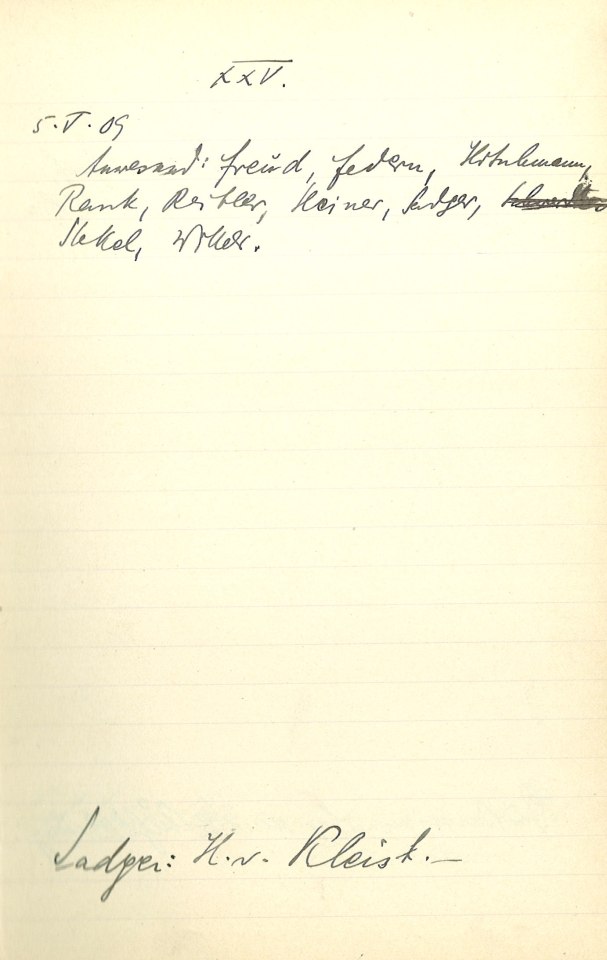 XXV.
5.V.09
Anwesend: Freud, Federn, Hitschmann,
Rank, Reitler, Heiner, Sadger,
Stekel, Wittels.
Sadger: H. v. Kleist. —